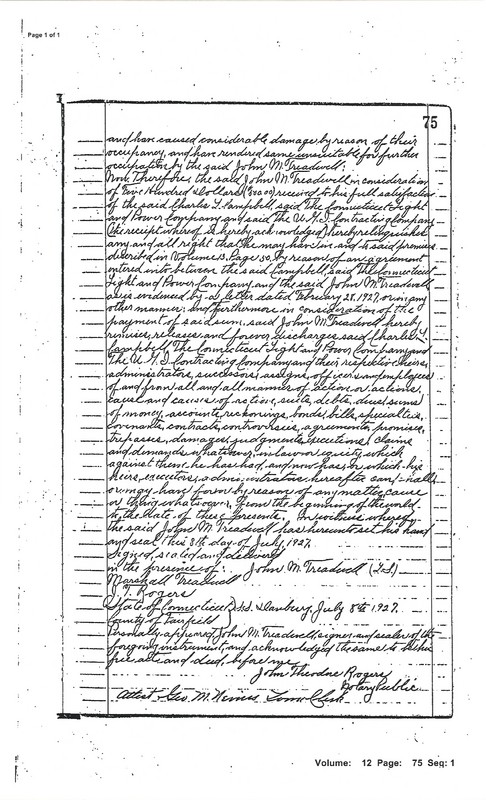 Page 1 of 1
75
and have caused considerable damage by reason of their
occupancy, and have rendered same unsuitable for further
occupation by the said John M. Treadwell.
Now, Therefore, the said John M. Treadwell, in consideration
of Five Hundred Dollars ($500.00) received to his full satisfaction
of the said Charles L. Campbell, said The Connecticut Light
and Power Company and said The U.G.I. Contracting Company
(the receipt whereof is hereby acknowledged) hereby relinquishes
any and all right that he may have in and to said premises
described in Volume 13, Page 50, by reason of an agreement
entered into between the said Campbell, said The Connecticut
Light and Power Company, and the said John M. Treadwell
as evidenced by a letter dated February 28, 1927, or in any
other manner; and furthermore in consideration of the
payment of said sum, said John M. Treadwell hereby
remises, releases and forever discharges said Charles L.
Campbell, The Connecticut Light and Power Company and
The U.G.I. Contracting Company and their respective heirs,
administrators, successors, assigns, officers and employees
of and from all and all manner of action or actions,
cause and causes of action, suits, debts, dues, sums
of money, accounts, reckonings, bonds, bills, specialties,
covenants, contracts, controversies, agreements, promises,
trespasses, damages, judgments, executions, claims
and demands whatsoever, in law or equity, which
against them he has had, and now has, or which his
heirs, executors, administrators, hereafter can, shall
or may have for or by reason of any matter, cause
or thing whatsoever, from the beginning of the world
to the date of these presents. In witness whereof
the said John M. Treadwell has hereunto set his hand
and seal this 8th day of July, 1927.
Signed, sealed and delivered
in the presence of: John M. Treadwell (L.S.)
Marshall Treadwell
J. T. Rogers
State of Connecticut } S.S. Danbury, July 8th 1927.
County of Fairfield
Personally appeared John M. Treadwell, signer, and sealer of the
foregoing instrument, and acknowledged the same to be his
free act and deed, before me
John Theodore Rogers
Notary Public
Attest: Geo. M. Town Clerk
Volume: 12 Page: 75 Seq: 1